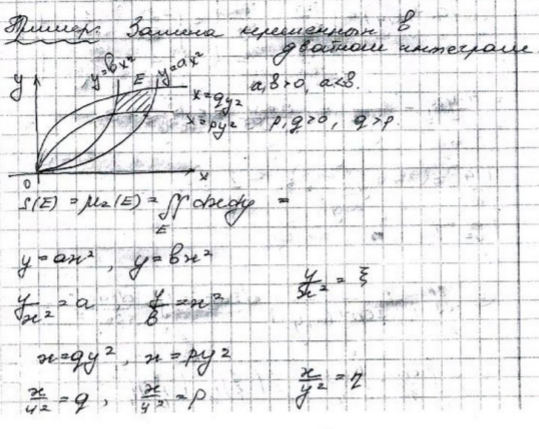 Пример. Замена переменных в
двойном интеграле.
y y=bx² E y=ax² a,b>0, a<b.
x=qy²
x=py² p,q>0, q>p
0 x
S(E) = μ₂(E) = ∬ dxdy =
E
y=ax², y=bx²
y/x² = a, y/b = x² y/x² = ξ
x=qy², x=py²
x/y² = q, x/y² = p x/y² = η